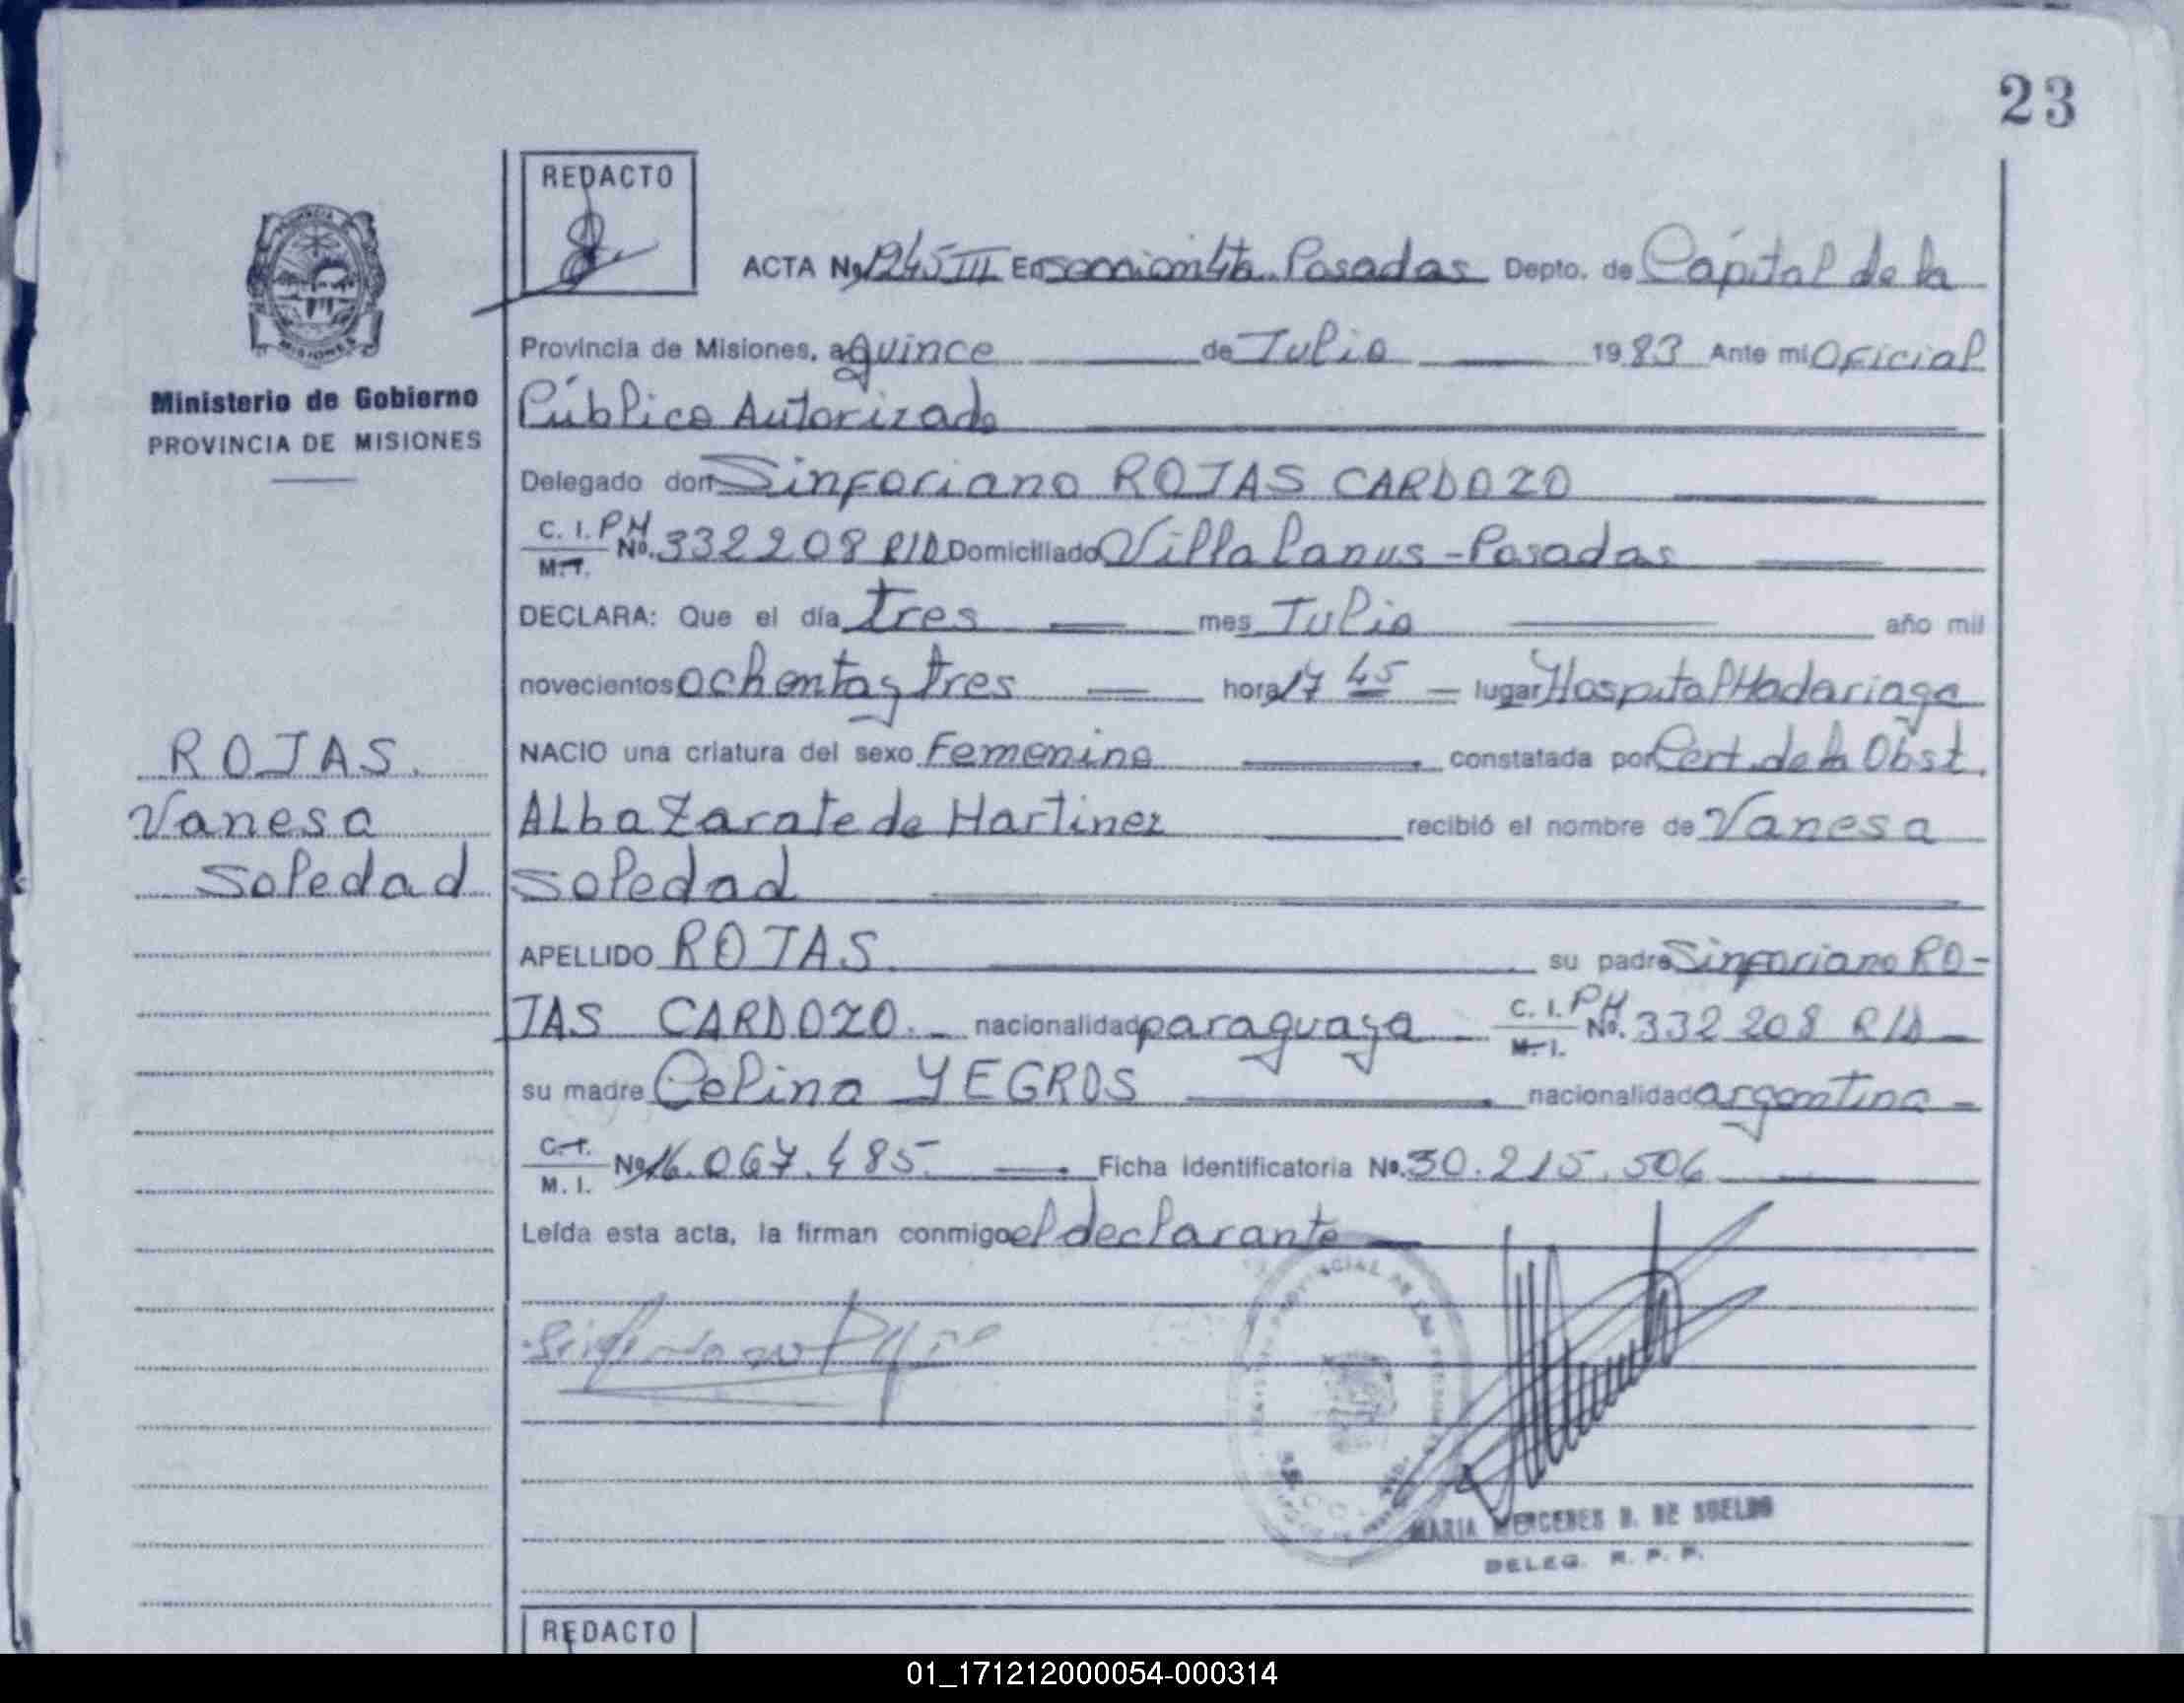 23
REDACTO
ACTA No 1245 III En Posadas Depto. de Capital de la
Provincia de Misiones, a quince de Julio 1983 Ante mi Oficial
Público Autorizado
Delegado don Sinforiano ROJAS CARDOZO
C. I. PM
M. I. No. 332208 R/D Domiciliado Villa Lanus - Posadas
DECLARA: Que el día tres mes Julio año mil
novecientos ochenta y tres hora 17 45 lugar Hospital Madariaga
NACIO una criatura del sexo Femenino constatada por Cert. de la Obst.
Alba Zarate de Martinez recibió el nombre de Vanesa
Soledad
APELLIDO ROJAS su padre Sinforiano RO-
JAS CARDOZO. nacionalidad paraguaya C. I. PM M. I. No. 332 208 R/D
su madre Celina YEGROS nacionalidad argentina
C. I. M. I. No 16.067.485 Ficha identificatoria No. 30.215.506
Leída esta acta, la firman conmigo el declarante
MARIA MERCEDES D. DE SUELDO
DELEG. R. P. P.
REDACTO
PROVINCIA
MISIONES
Ministerio de Gobierno
PROVINCIA DE MISIONES
ROJAS
Vanesa
Soledad
01_171212000054-000314